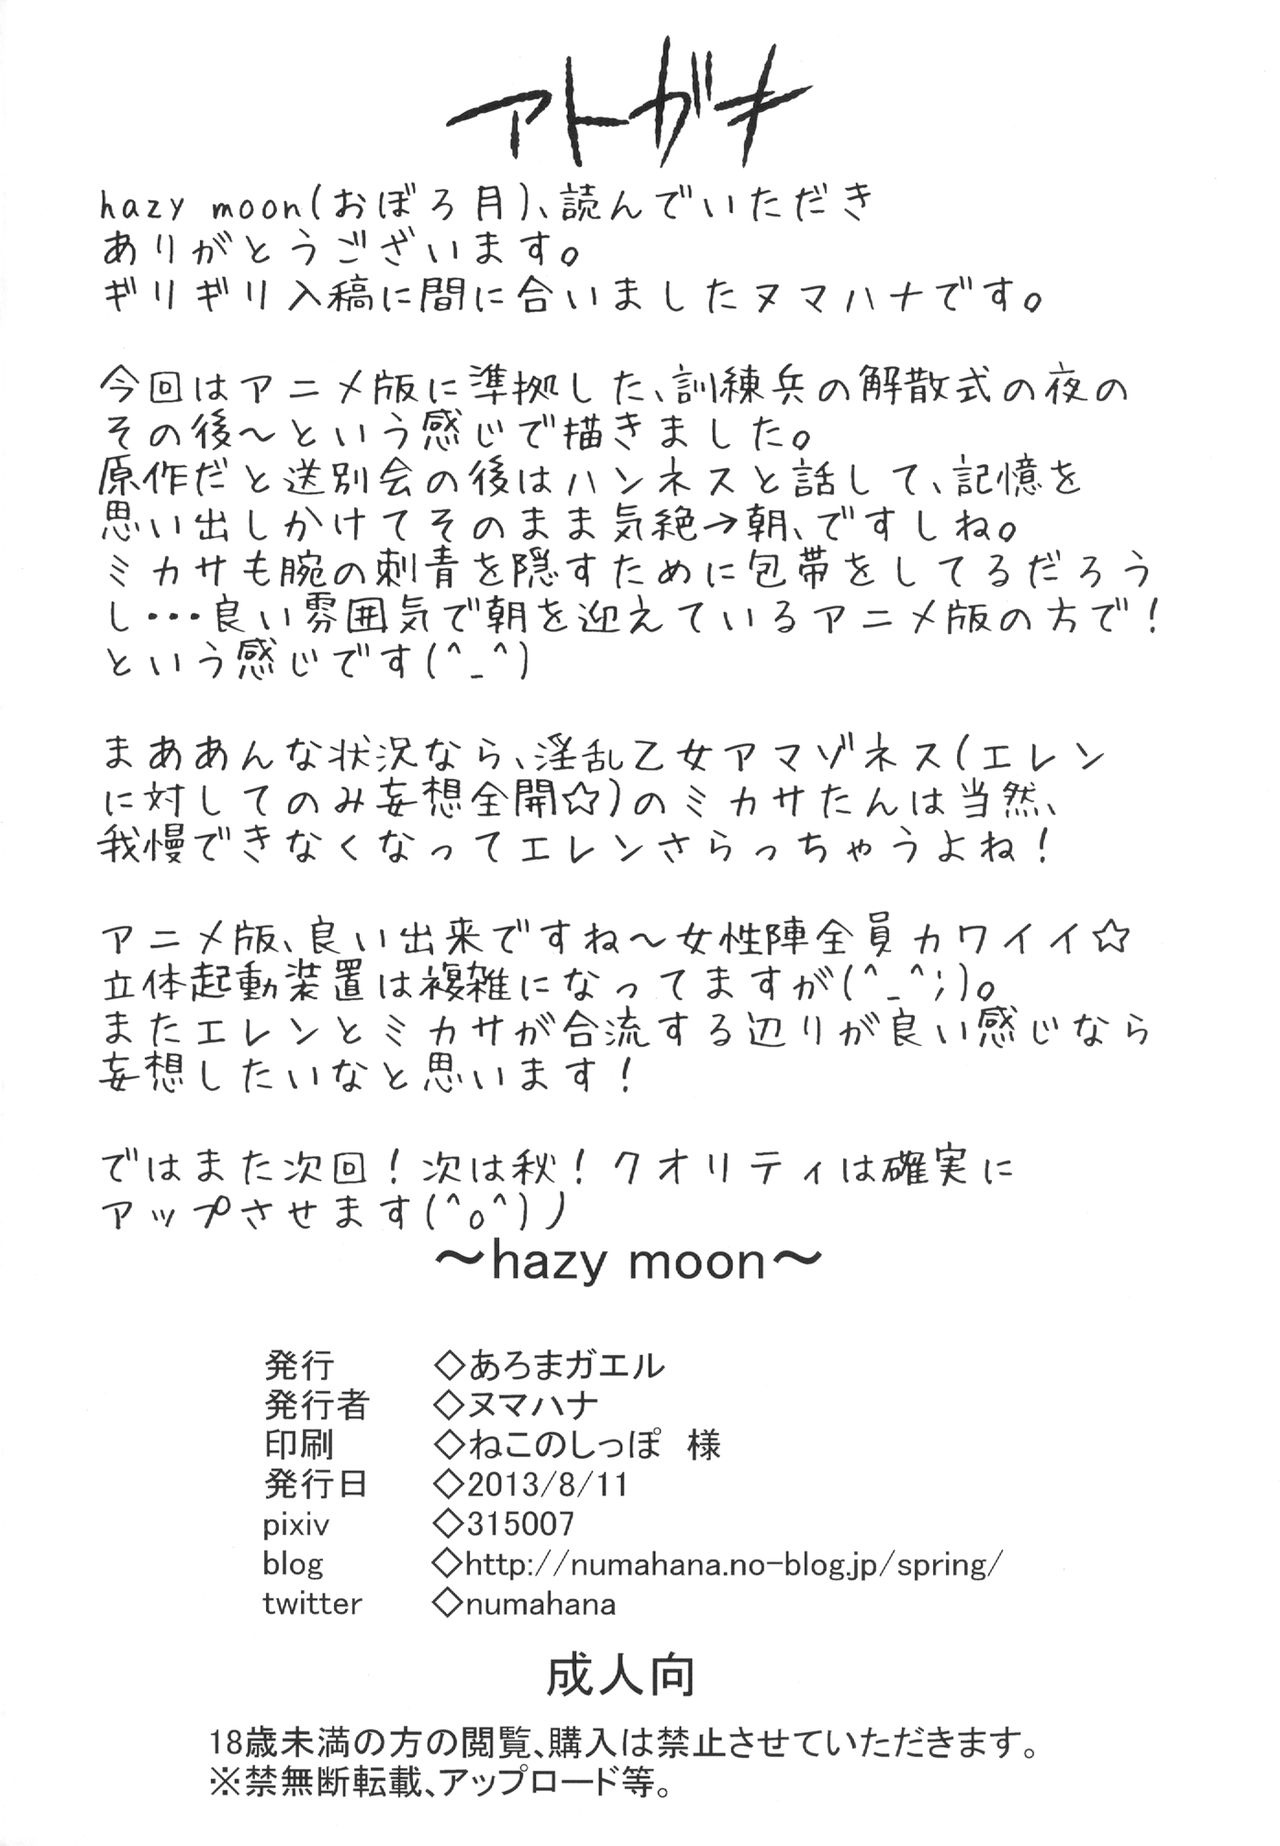 アトガキ
hazy moon(おぼろ月)、読んでいただき
ありがとうございます。
ギリギリ入稿に間に合いましたヌマハナです。
今回はアニメ版に準拠した、訓練兵の解散式の夜の
その後～という感じで描きました。
原作だと送別会の後はハンネスと話して、記憶を
思い出しかけてそのまま気絶→朝、ですしね。
ミカサも腕の刺青を隠すために包帯をしてるだろう
し・・・良い雰囲気で朝を迎えているアニメ版の方で！
という感じです(^_^)
まああんな状況なら、淫乱乙女アマゾネス(エレン
に対してのみ妄想全開☆)のミカサたんは当然、
我慢できなくなってエレンさらっちゃうよね！
アニメ版、良い出来ですね～女性陣全員カワイイ☆
立体起動装置は複雑になってますが(^_^;)。
またエレンとミカサが合流する辺りが良い感じなら
妄想したいなと思います！
ではまた次回！次は秋！クオリティは確実に
アップさせます(^o^)ノ
～hazy moon～
発行 ◇あろまガエル
発行者 ◇ヌマハナ
印刷 ◇ねこのしっぽ 様
発行日 ◇2013/8/11
pixiv ◇315007
blog ◇http://numahana.no-blog.jp/spring/
twitter ◇numahana
成人向
18歳未満の方の閲覧、購入は禁止させていただきます。
※禁無断転載、アップロード等。